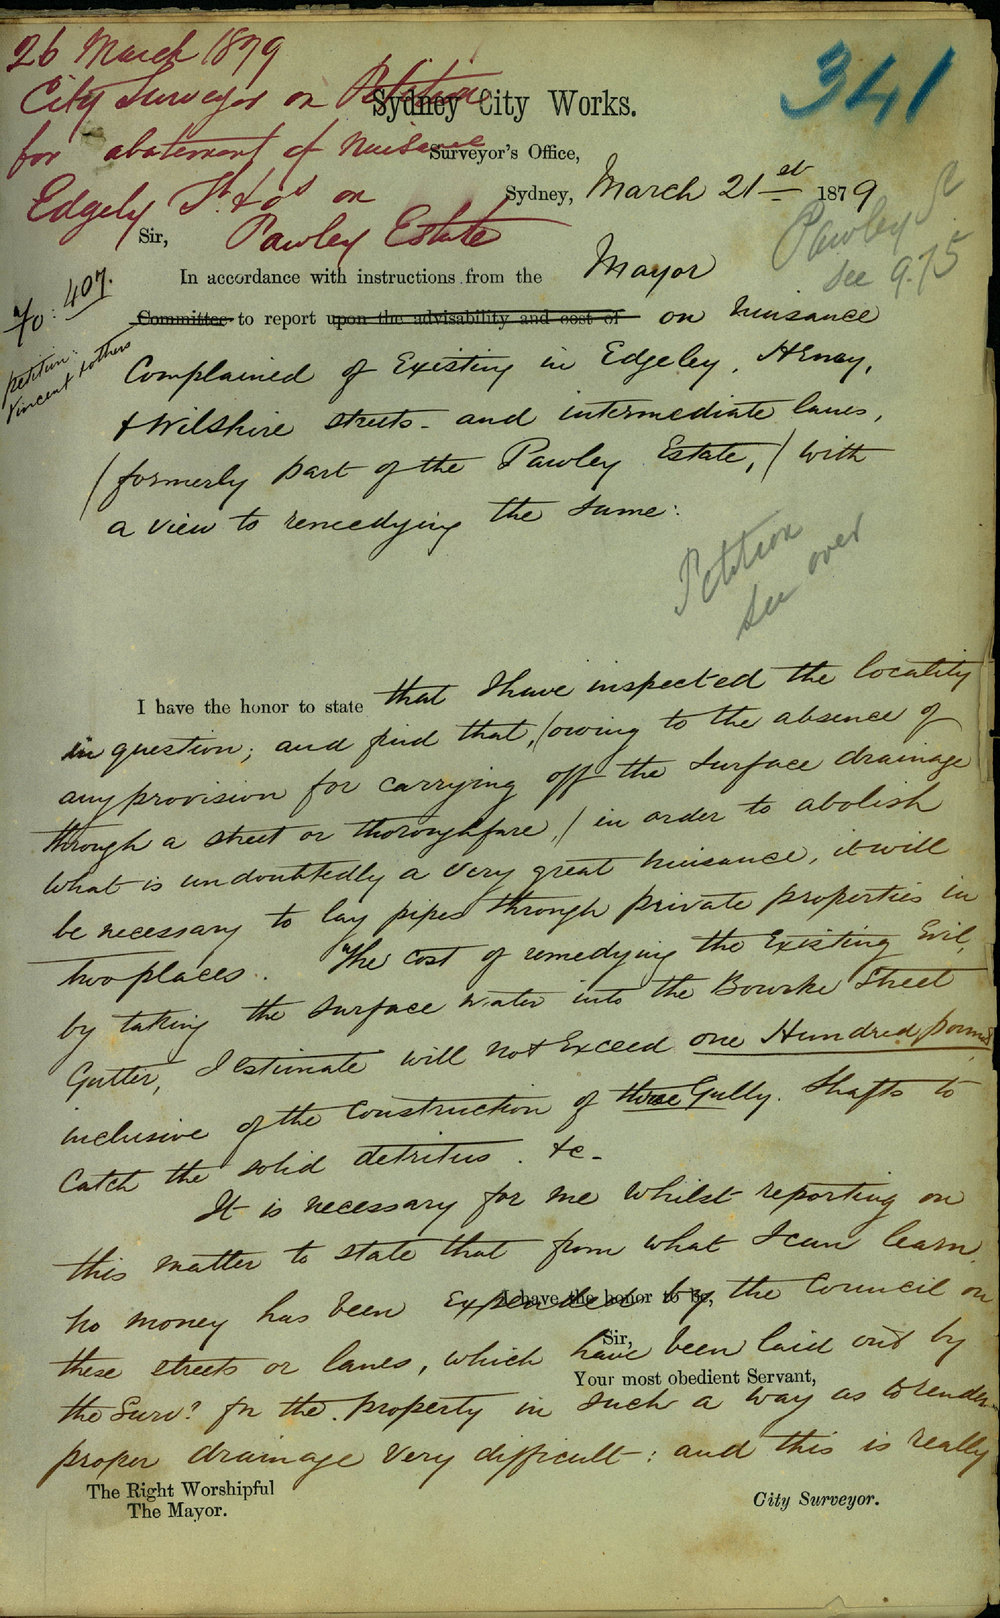 26 March 1879
341
City Surveyor on Petition
Sydney City Works.
for abatement of nuisance
Surveyor's Office,
Edgely St & os on
Sydney, March 21st 1879
Pawley St
see 9.75
Sir,
Pawley Estate
In accordance with instructions from the Mayor
No: 407.
petition:
Vincent & others
Committee to report upon the advisability and cost of on nuisance
Complained of Existing in Edgeley, Henry,
& Wilshire streets - and intermediate lanes,
(formerly part of the Pawley Estate,) with
a view to remedying the same:
Petition
see over
I have the honor to state that I have inspected the locality
in question; and find that, (owing to the absence of
any provision for carrying off the surface drainage
through a street or thoroughfare,) in order to abolish
what is undoubtedly a very great nuisance, it will
be necessary to lay pipes through private properties in
two places. The cost of remedying the Existing Evil,
by taking the surface water into the Bourke Street
Gutter, I Estimate will not Exceed one Hundred pounds
inclusive of the Construction of three Gully. Shafts to
Catch the solid detritus. &c -
It is necessary for me whilst reporting on
this matter to state that from what I can learn
no money has been Expended by the Council on
I have the honor to be,
these streets or lanes, which have been laid out by
Sir,
Your most obedient Servant,
the Survr for the property in such a way as to render
proper drainage very difficult: and this is really
The Right Worshipful
The Mayor.
City Surveyor.